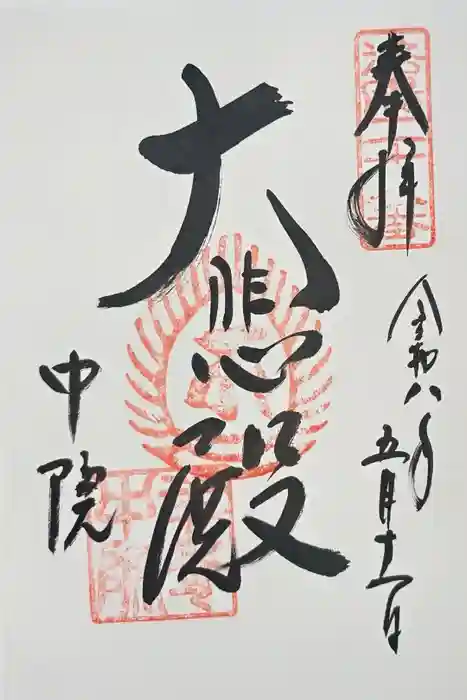 奉拝
令和八年
五月十一日
大悲殿
中院